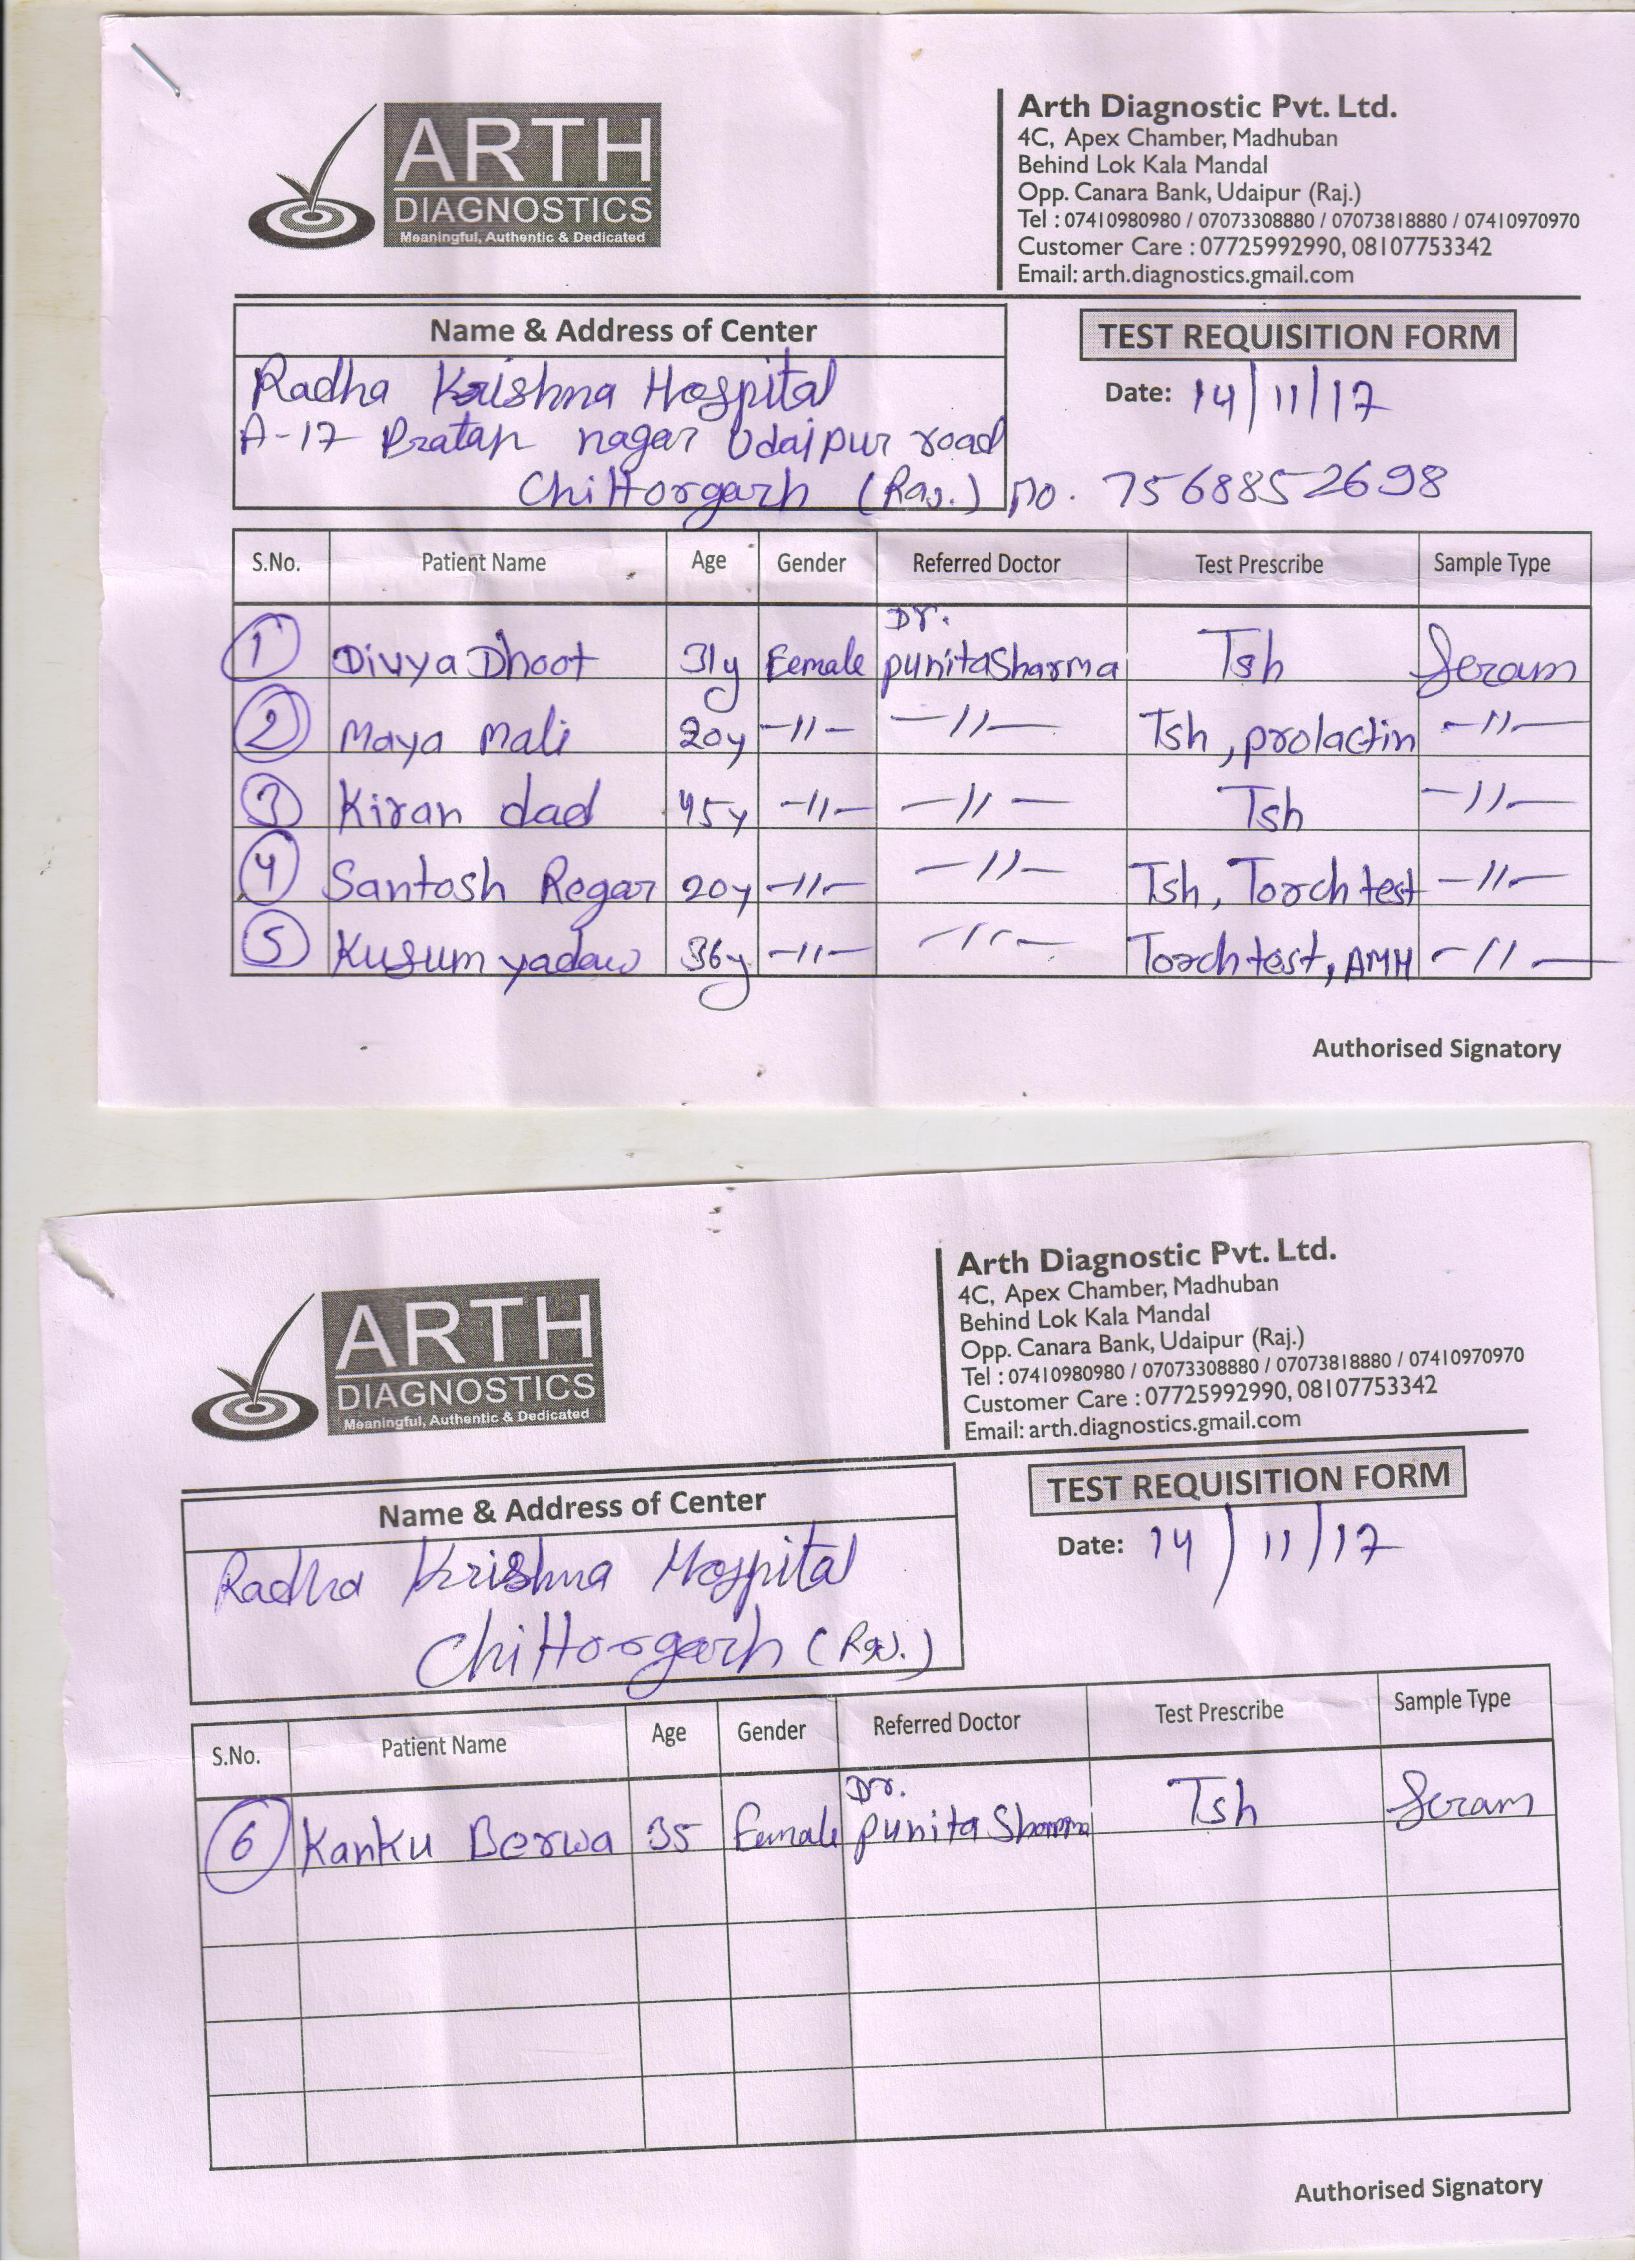 ARTH
DIAGNOSTICS
Meaningful, Authentic & Dedicated
Arth Diagnostic Pvt. Ltd.
4C, Apex Chamber, Madhuban
Behind Lok Kala Mandal
Opp. Canara Bank, Udaipur (Raj.)
Tel : 07410980980 / 07073308880 / 07073818880 / 07410970970
Customer Care : 07725992990, 08107753342
Email: arth.diagnostics.gmail.com
Name & Address of Center
TEST REQUISITION FORM
Radha Krishna Hospital
Date: 14/11/17
A-17 Pratap nagar Udaipur road
Chittorgarh (Raj.) no. 7568852698
S.No. Patient Name Age Gender Referred Doctor Test Prescribe Sample Type
1 Divya Dhoot 31y Female Dr. punita Sharma Tsh Seram
2 Maya mali 20y -11- -11- Tsh, prolactin -11-
3 Kiran dad 45y -11- -11- Tsh -11-
4 Santosh Regar 20y -11- -11- Tsh, Torch test -11-
5 Kusum yadaw 36y -11- -11- Torch test, AMH -11-
Authorised Signatory
ARTH
DIAGNOSTICS
Meaningful, Authentic & Dedicated
Arth Diagnostic Pvt. Ltd.
4C, Apex Chamber, Madhuban
Behind Lok Kala Mandal
Opp. Canara Bank, Udaipur (Raj.)
Tel : 07410980980 / 07073308880 / 07073818880 / 07410970970
Customer Care : 07725992990, 08107753342
Email: arth.diagnostics.gmail.com
Name & Address of Center
TEST REQUISITION FORM
Radha Krishna Hospital
Date: 14/11/17
Chittorgarh (Raj.)
S.No. Patient Name Age Gender Referred Doctor Test Prescribe Sample Type
6 Kanku Berwa 35 Female Dr. punita Sharma Tsh Seram
Authorised Signatory